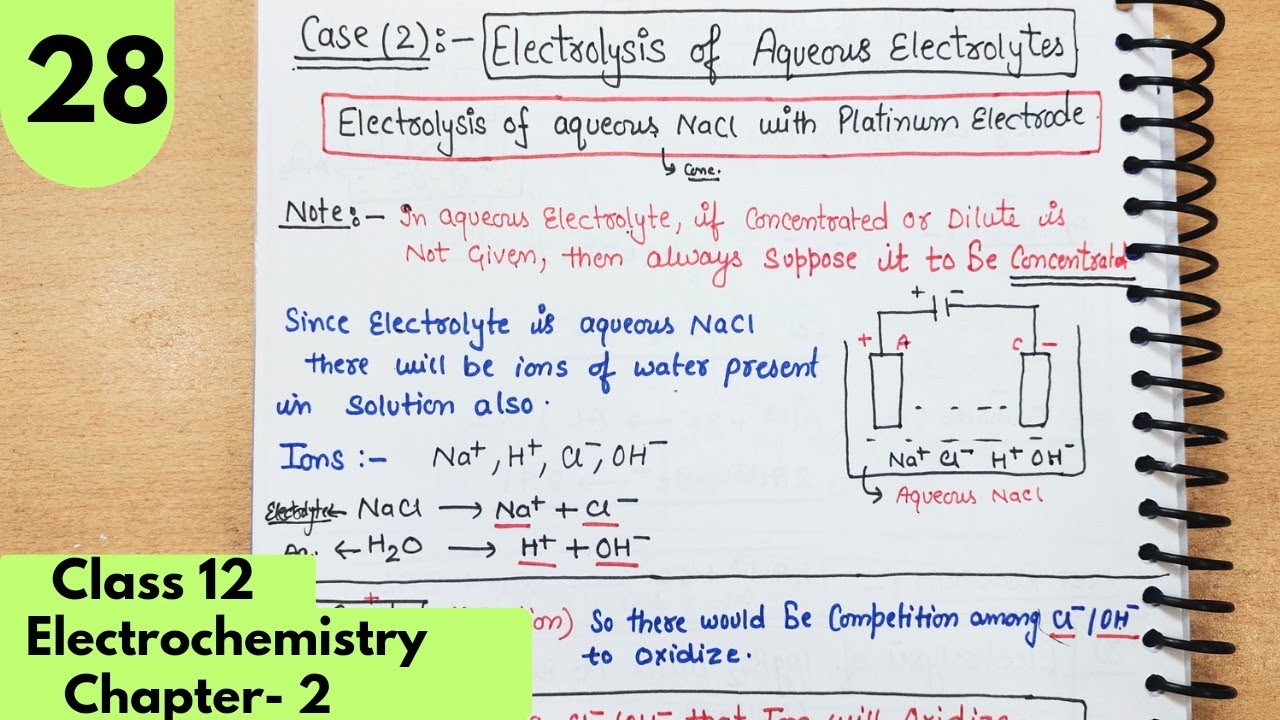 28
Case (2):- Electrolysis of Aqueous Electrolytes
Electrolysis of aqueous NaCl with Platinum Electrode
↳ Conc.
Note:- In aqueous Electrolyte, if Concentrated or Dilute is
Not Given, then always Suppose it to be Concentrated
Since Electrolyte is aqueous NaCl
there will be ions of water present
in solution also.
Ions:- Na⁺, H⁺, Cl⁻, OH⁻
Electrolyte← NaCl → Na⁺ + Cl⁻
Aq. ← H₂O → H⁺ + OH⁻
+ -
+ A C -
Na⁺ Cl⁻ H⁺ OH⁻
↳ Aqueous NaCl
+
So there would be Competition among Cl⁻/OH⁻
to oxidize.
Cl⁻/OH⁻ that Ion will Oxidize
Class 12
Electrochemistry
Chapter- 2